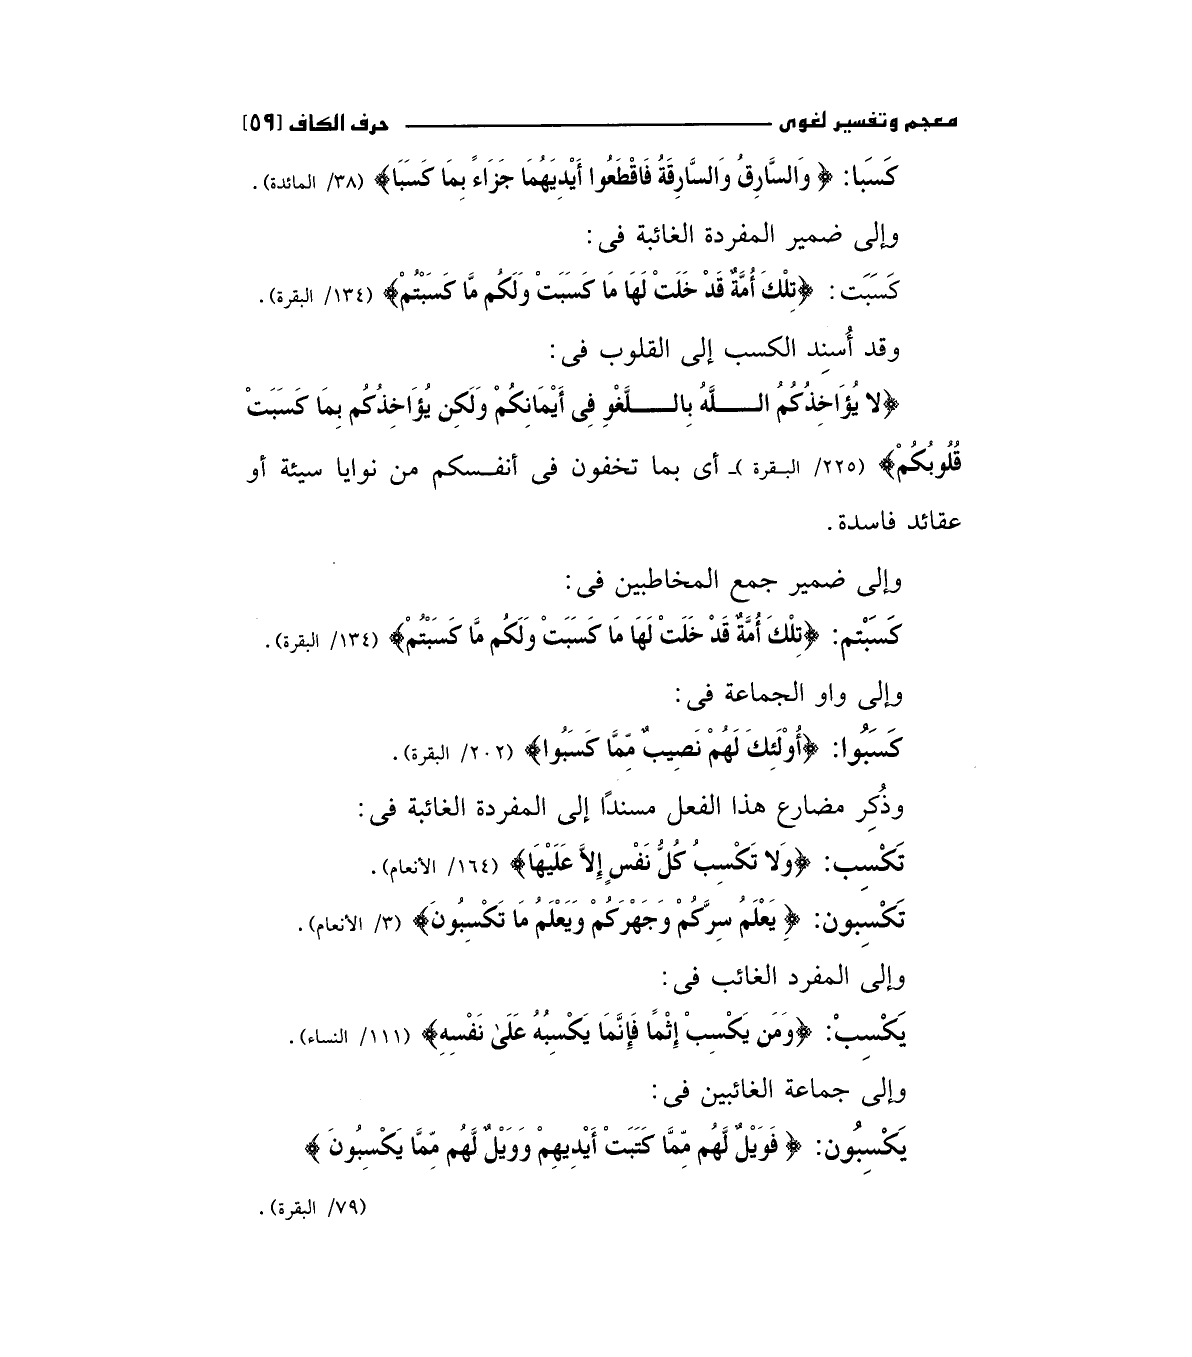 معجم وتفسير لغوى ــــــــــ حرف الكاف [٥٩]
كَسَبا: ﴿ وَالسَّارِقُ وَالسَّارِقَةُ فَاقْطَعُوا أَيْدِيَهُمَا جَزَاءً بِمَا كَسَبَا﴾ (٣٨/ المائدة).
وإلى ضمير المفردة الغائبة فى:
كَسَبَت: ﴿تِلْكَ أُمَّةٌ قَدْ خَلَتْ لَهَا مَا كَسَبَتْ وَلَكُم مَّا كَسَبْتُمْ﴾ (١٣٤/ البقرة).
وقد أُسنِد الكسب إلى القلوب فى:
﴿لا يُؤَاخِذُكُمُ اللَّهُ بِاللَّغْوِ فِى أَيْمَانِكُمْ وَلَكِن يُؤَاخِذُكُم بِمَا كَسَبَتْ
قُلُوبُكُمْ﴾ (٢٢٥/ البقرة )ـ أى بما تخفون فى أنفسكم من نوايا سيئة أو
عقائد فاسدة.
وإلى ضمير جمع المخاطبين فى:
كَسَبْتم: ﴿تِلْكَ أُمَّةٌ قَدْ خَلَتْ لَهَا مَا كَسَبَتْ وَلَكُم مَّا كَسَبْتُمْ﴾ (١٣٤/ البقرة).
وإلى واو الجماعة فى:
كَسَبُوا: ﴿أُوْلَئِكَ لَهُمْ نَصِيبٌ مِّمَّا كَسَبُوا﴾ (٢٠٢/ البقرة).
وذُكِر مضارع هذا الفعل مسندًا إلى المفردة الغائبة فى:
تَكْسِب: ﴿وَلا تَكْسِبُ كُلُّ نَفْسٍ إِلاَّ عَلَيْهَا﴾ (١٦٤/ الأنعام).
تَكْسِبون: ﴿ يَعْلَمُ سِرَّكُمْ وَجَهْرَكُمْ وَيَعْلَمُ مَا تَكْسِبُونَ﴾ (٣/ الأنعام).
وإلى المفرد الغائب فى:
يَكْسِبْ: ﴿وَمَن يَكْسِبْ إِثْمًا فَإِنَّمَا يَكْسِبُهُ عَلَىٰ نَفْسِهِ﴾ (١١١/ النساء).
وإلى جماعة الغائبين فى:
يَكْسِبُون: ﴿ فَوَيْلٌ لَّهُم مِّمَّا كَتَبَتْ أَيْدِيهِمْ وَوَيْلٌ لَّهُم مِّمَّا يَكْسِبُونَ ﴾
(٧٩/ البقرة).